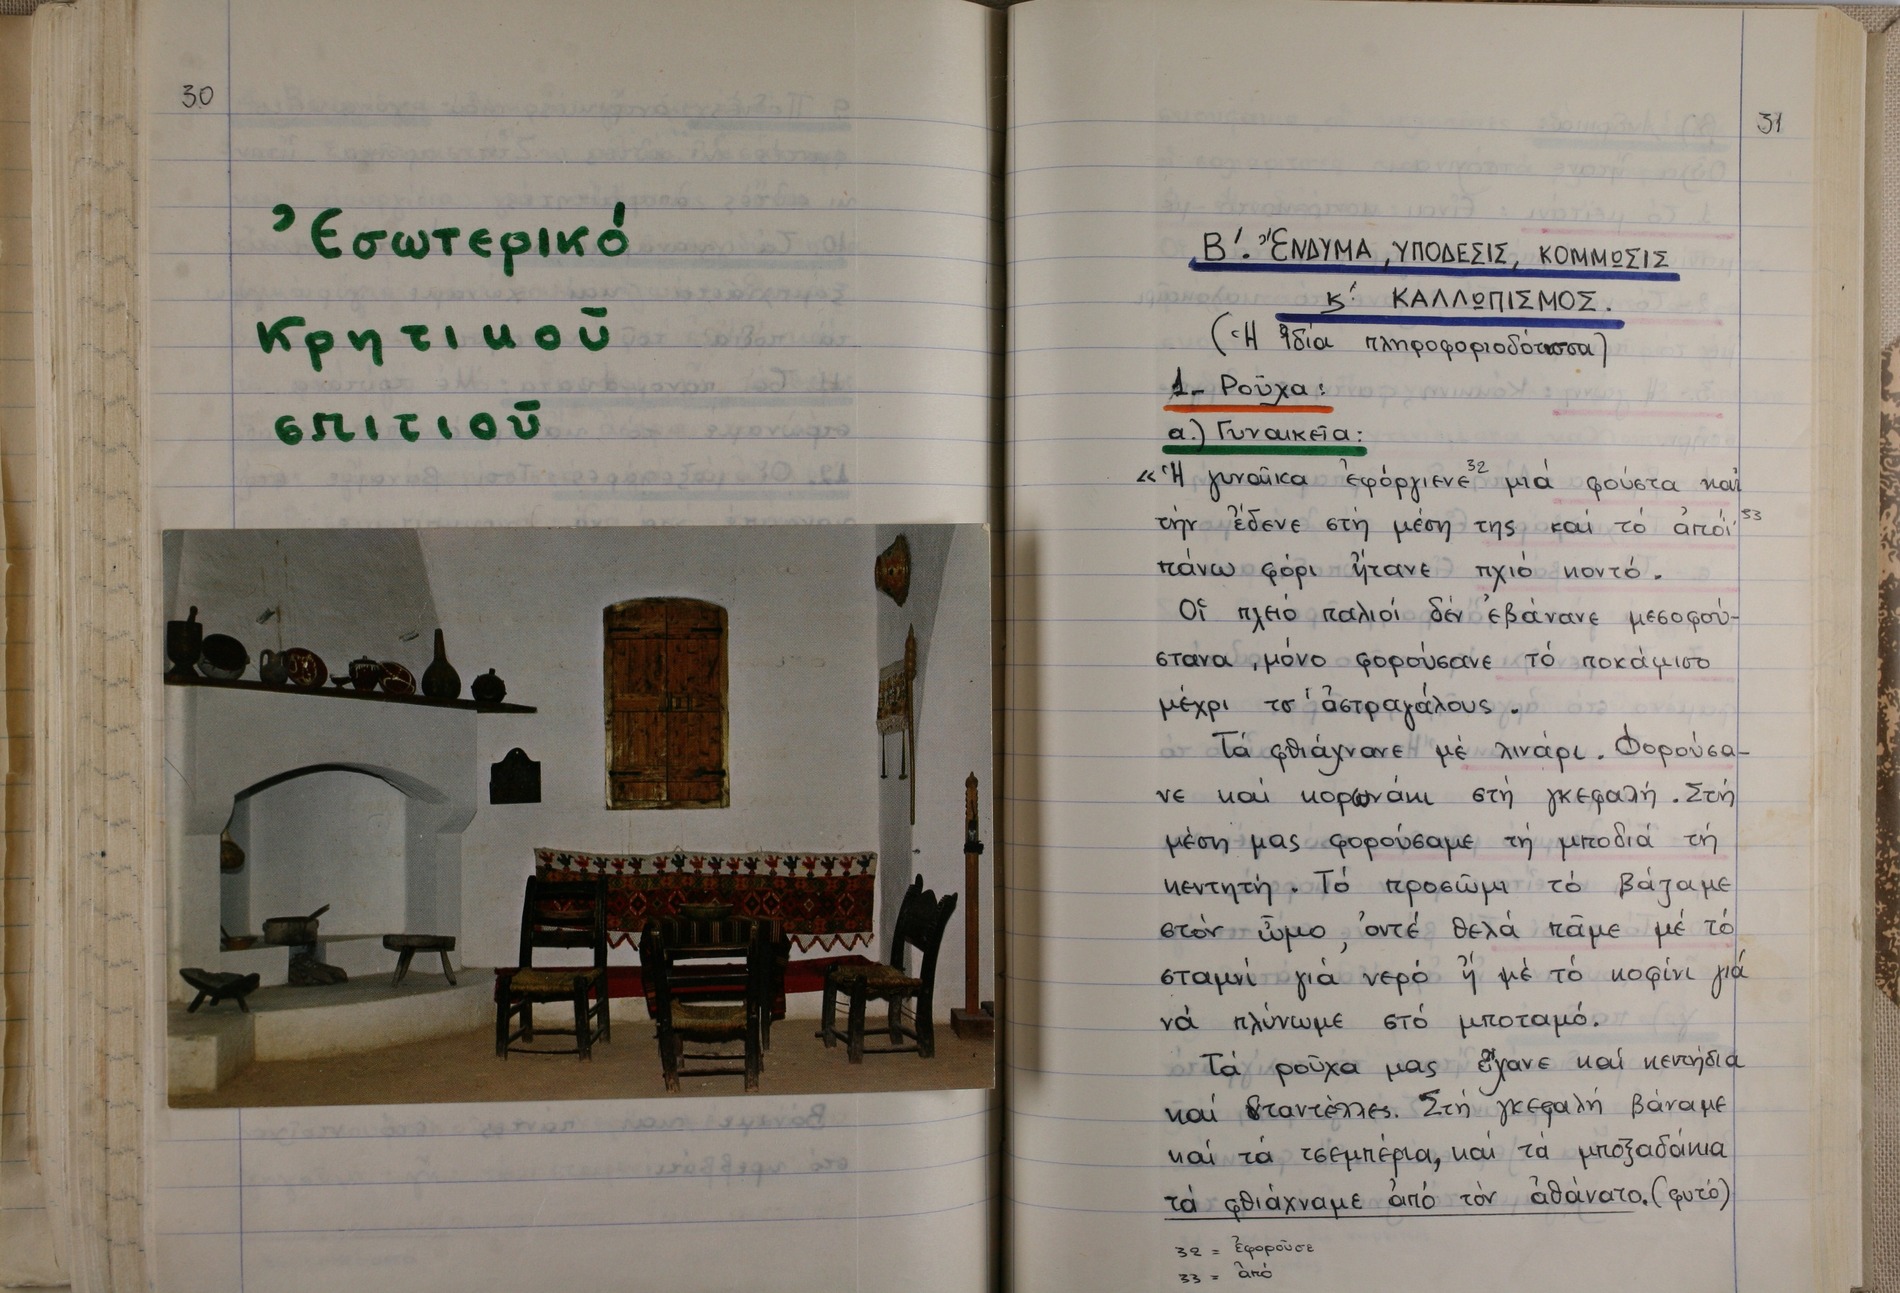 30
Ἐσωτερικό
Κρητικοῦ
σπιτιοῦ
31
Β΄. ἜΝΔΥΜΑ, ΥΠΟΔΕΣΙΣ, ΚΟΜΜΩΣΙΣ
κ΄ ΚΑΛΛΩΠΙΣΜΟΣ.
(Ἡ ἴδια πληροφοριοδότισσα)
1- Ροῦχα:
α.) Γυναικεῖα:
«Ἡ γυναῖκα ἐφόργιενε³² μιά φούστα καί
τήν ἔδενε στή μέση της καί τό ἀπόί³³
πάνω φόρι ἤτανε πχιό κοντό.
Οἱ πλειό παλιοί δέν ἐβάνανε μεσοφού-
στανα, μόνο φορούσανε τό ποκάμισο
μέχρι τσ' ἀστραγάλους.
Τά φθιάχνανε μέ λινάρι. Φορούσα-
νε καί κορωνάκι στή γκεφαλή. Στή
μέση μας φορούσαμε τή μποδιά τή
κεντητή. Τό προσῶμι τό βάζαμε
στόν ὦμο, ὀντέ θελά πᾶμε μέ τό
σταμνί γιά νερό ἤ μέ τό κοφίνι γιά
νά πλύνωμε στό μποταμό.
Τά ροῦχα μας εἴχανε καί κεντήδια
καί νταντέλλες. Στή γκεφαλή βάναμε
καί τά τσεμπέρια, καί τά μποξαδάκια
τά φθιάχναμε ἀπό τόν ἀθάνατο. (φυτό)
32 = ἐφοροῦσε
33 = ἀπό